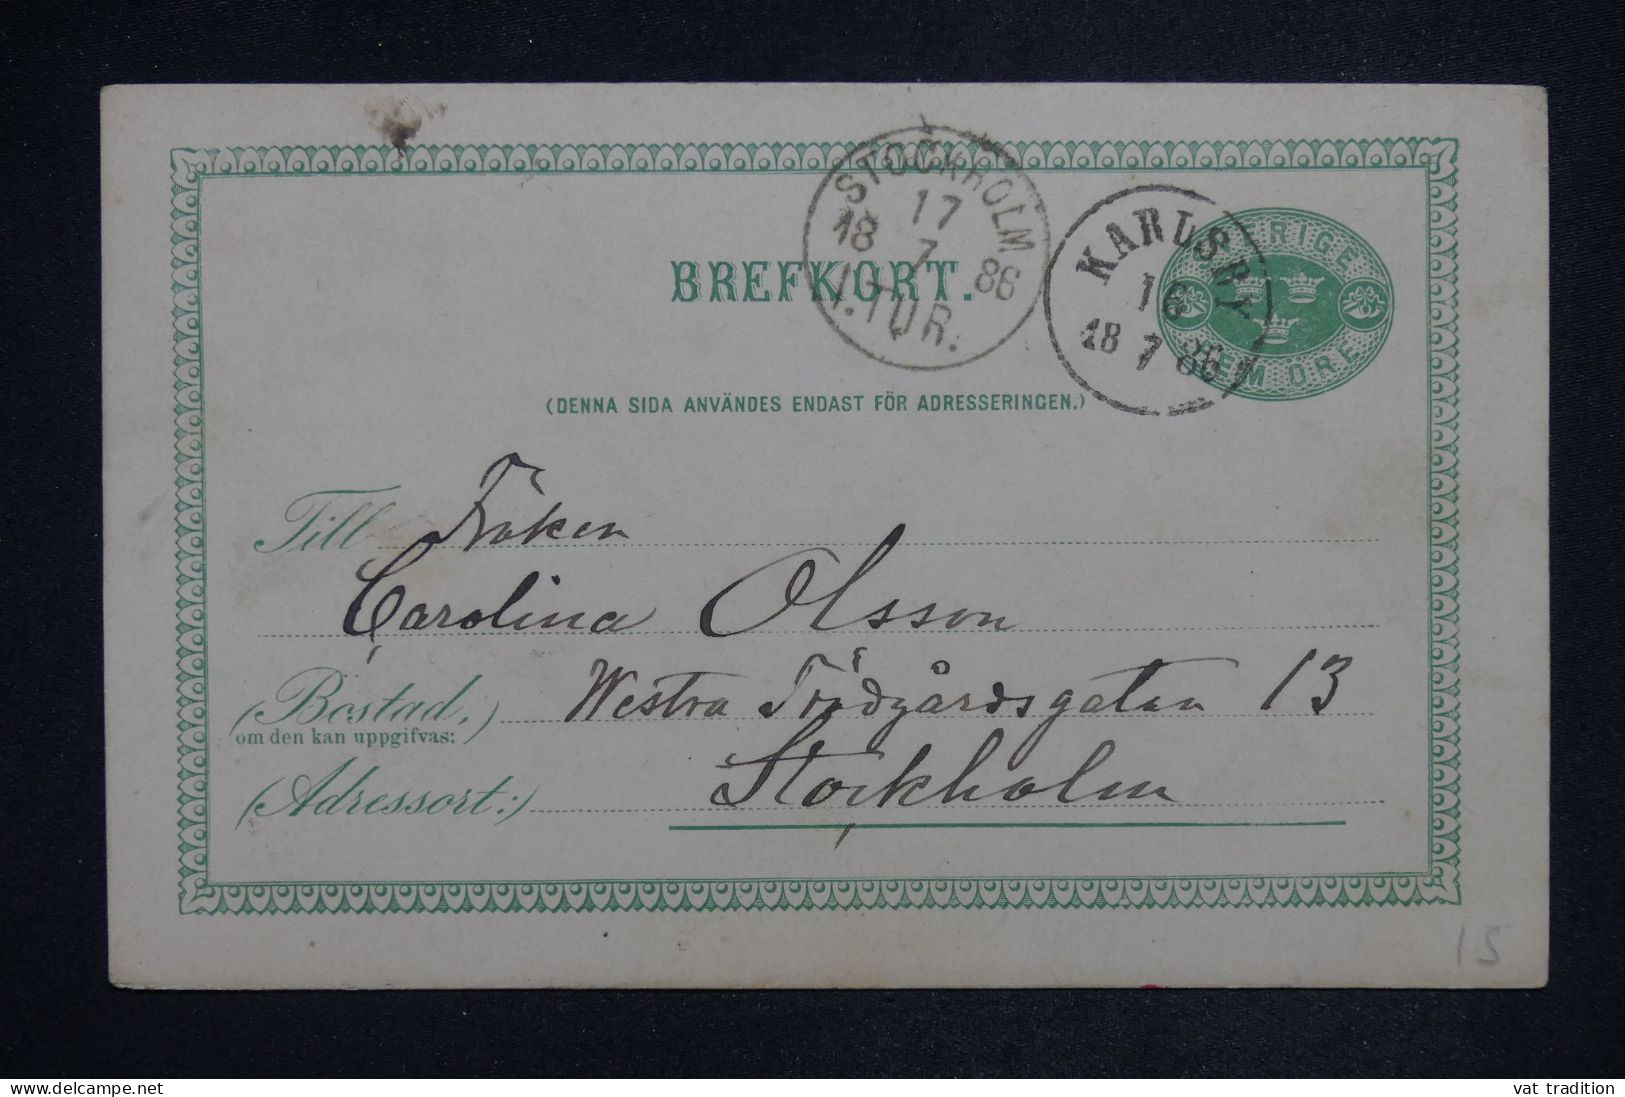 STOCKHOLM
17
18 7 86
1.TUR.
KARLSBY
16
18 7 86
SVERIGE
FEM ÖRE
BREFKORT.
(DENNA SIDA ANVÄNDES ENDAST FÖR ADRESSERINGEN.)
Till Fröken
Carolina Olsson
(Bostad,) Westra Trädgårdsgatan 13
om den kan uppgifvas:
(Adressort:) Stockholm
15
delcampe.net
vat tradition